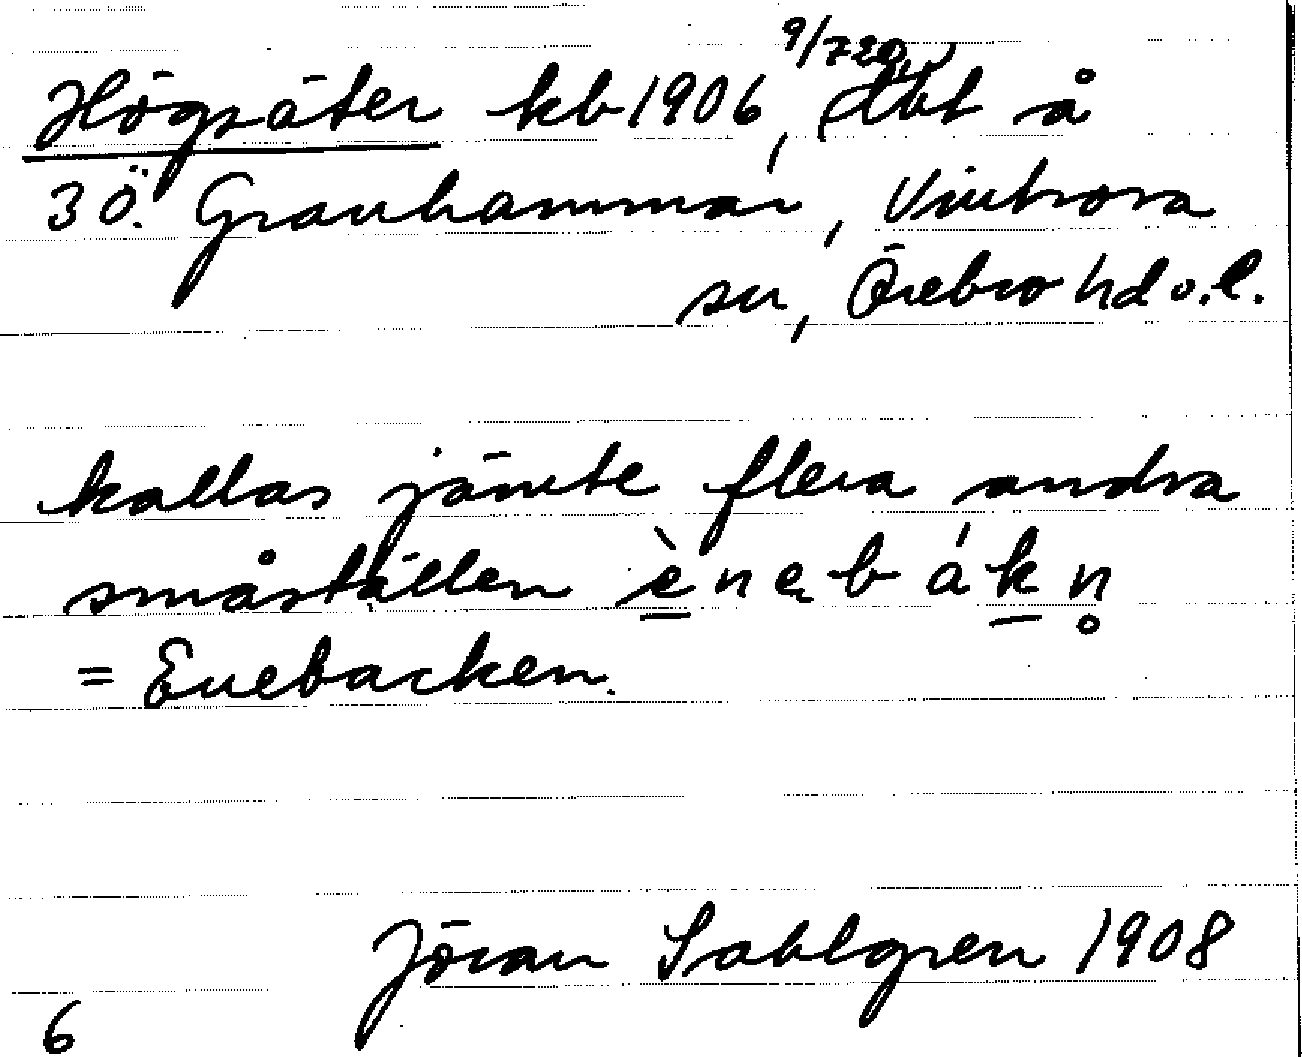 9/720
Högsäter kb 1906, dbt å
3 Ö. Granhammar, Vintrosa
sn, Örebro hd o. l.
kallas jämte flera andra
småställen ènebákn̥
= Enebacken.
Jöran Sahlgren 1908
6